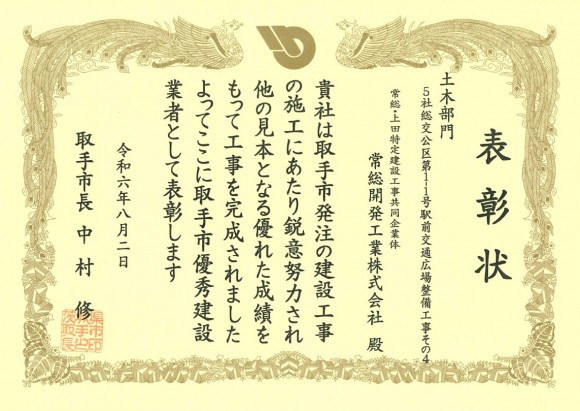 表彰状
土木部門
5社総交公区第1-1号駅前交通広場整備工事その4
常総・上田特定建設工事共同企業体
常総開発工業株式会社 殿
貴社は取手市発注の建設工事
の施工にあたり鋭意努力され
他の見本となる優れた成績を
もって工事を完成されました
よってここに取手市優秀建設
業者として表彰します
令和六年八月二日
取手市長 中村 修